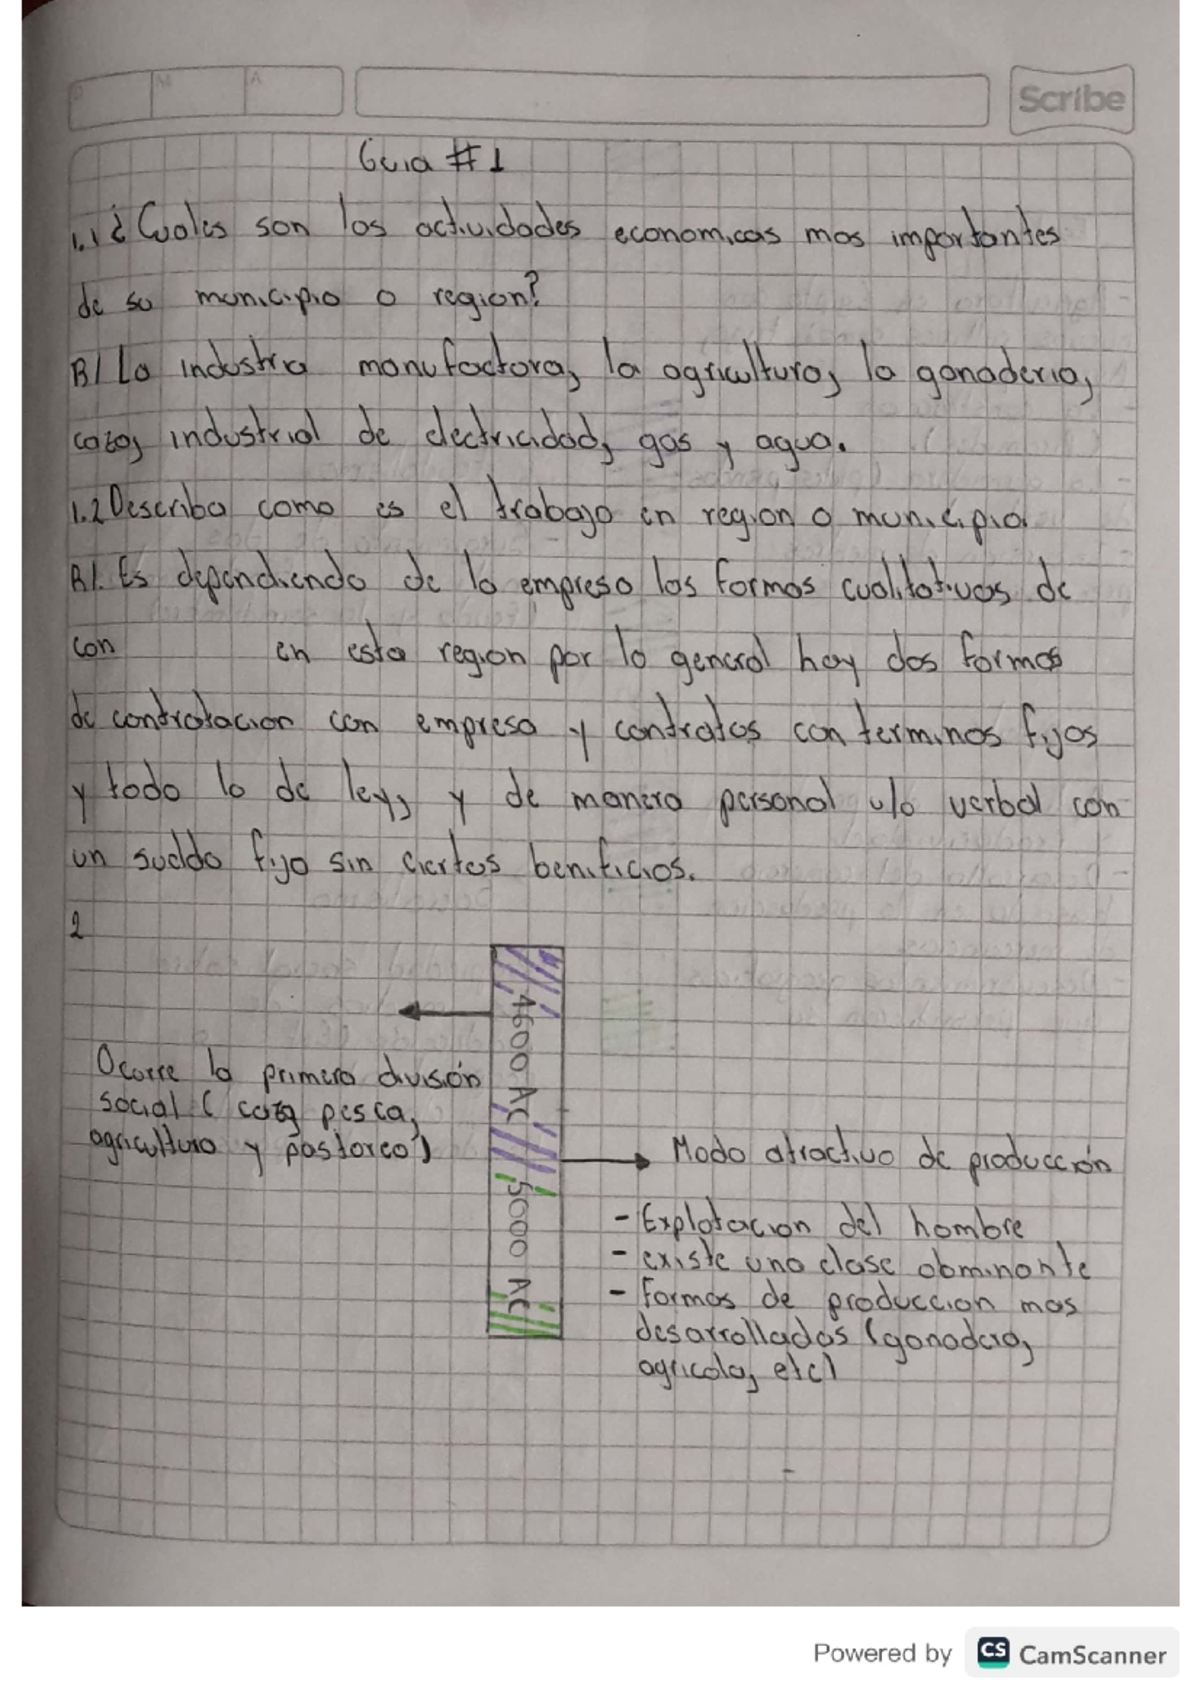 D M A
Scribe
Guia #1
1.1 ¿Cuales son las actividades economicas mas importantes
de su municipio o region?
R/ La industria manufactora, la agricultura, la ganaderia,
caza, industrial de electricidad, gas y agua.
1.2 Describa como es el trabajo en region o municipio
R/. Es dependiendo de la empresa las formas cualitativas de
con en esta region por lo general hay dos formas
de contratacion con empresa y contratos con terminos fijos
y todo lo de ley, y de manera personal y/o verbal con
un sueldo fijo sin ciertos benificios.
2
4600 AC
Ocorre la primera división
social ( caza pesca,
agricultura y pastoreo)
Modo atractivo de producción
5000 AC
- Explotacion del hombre
- existe una clase obminante
- Formas de produccion mas
desarrolladas (ganadera,
agricola, etc)
Powered by CS CamScanner